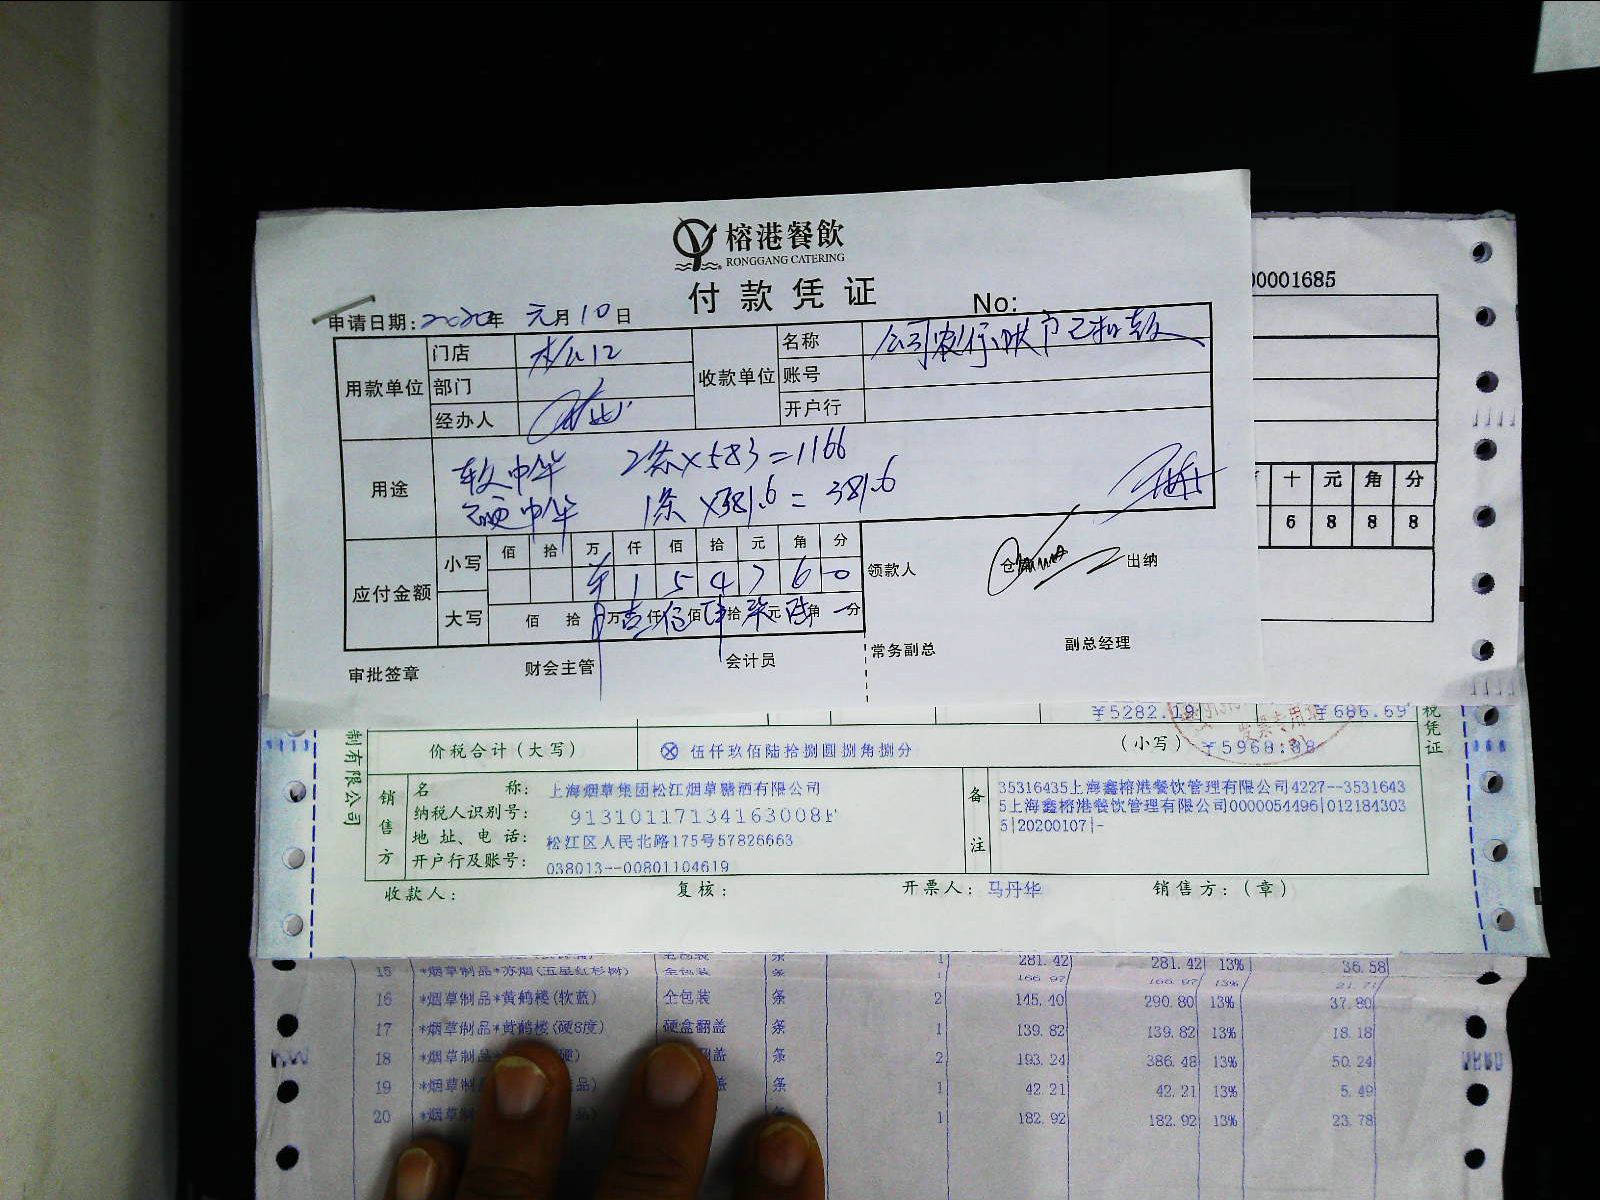 榕港餐飲
RONGGANG CATERING
付款凭证
No:
00001685
申请日期:2020年 元月10日
用款单位 门店 松江2 收款单位 名称
部门 账号
经办人 开户行
用途 软中华 2条×583=1166
硬中华 1条×381.6=381.6
应付金额 小写 佰 拾 万 仟 佰 拾 元 角 分
¥ 1 5 4 7 6 0
大写 佰 拾 万 壹仟 伍佰 肆拾 柒元 陆角 分
领款人 出纳
审批签章 财会主管 会计员 常务副总 副总经理
十 元 角 分
6 8 8 8
¥5282.19 ¥686.69
价税合计(大写) ⊗ 伍仟玖佰陆拾捌圆捌角捌分 (小写) ¥5968.88
制有限公司
税凭证
发票专用章
销售方
名 称: 上海烟草集团松江烟草糖酒有限公司
纳税人识别号: 91310117134163008
地址、电话: 松江区人民北路175号57826663
开户行及账号: 038013--00801104619
备注
35316435上海鑫榕港餐饮管理有限公司4227--3531643
5上海鑫榕港餐饮管理有限公司0000054496|012184303
5|20200107|-
收款人: 复核: 开票人: 马丹华 销售方:(章)
15 *烟草制品*苏烟(五星红杉树) 全包装 条 1 281.42 281.42 13% 36.58
16 *烟草制品*黄鹤楼(软蓝) 全包装 条 2 145.40 290.80 13% 37.80
17 *烟草制品*黄鹤楼(硬8度) 硬盒翻盖 条 1 139.82 139.82 13% 18.18
18 *烟草制品* 硬) 翻盖 条 2 193.24 386.48 13% 50.24
19 *烟草制品 品) 盖 条 1 42.21 42.21 13% 5.49
20 *烟草制 品) 条 1 182.92 182.92 13% 23.78